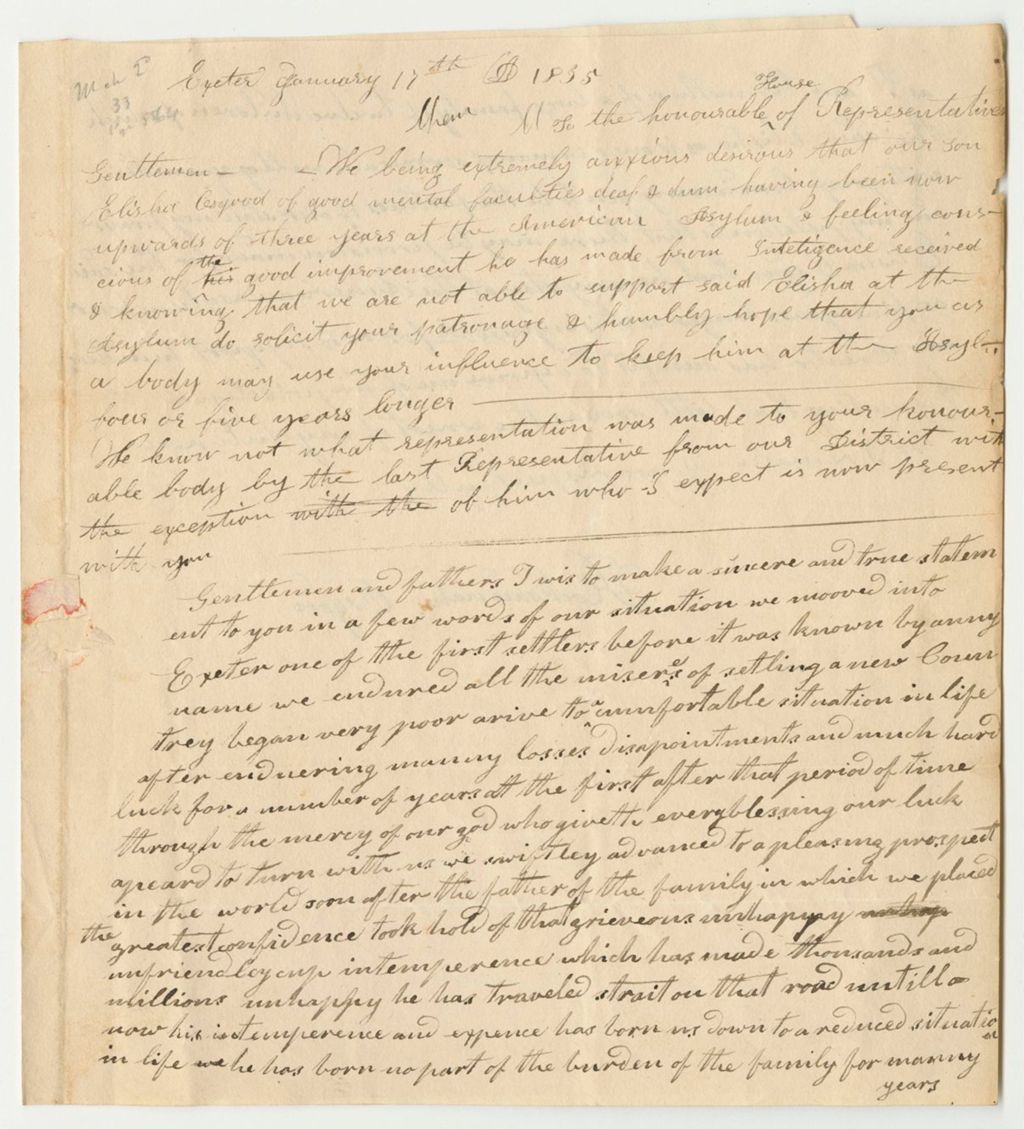 Exeter January 17th AD 1835
House
To the honourable ^ of Representatives
Gentlemen — We being extremely anxxious desirous that our son
Elisha Osgood of good mental faculties deaf & dum having been now
upwards of three years at the American Asylum & feeling cons-
cious of the his good improvement he has made from Inteligence received
& knowing that we are not able to support said Elisha at the
Asylum do solicit your patronage & humbly hope that you as
a body may use your influence to keep him at the Asyl-
four or five years longer
We know not what representation was made to your honour-
able body by the last Representative from our District with
the exception with the of him who I expect is now present
with you
Gentlemen and fathers I wis to make a sincere and true statem
ent to you in a few words of our situation we mooved into
Exeter one of the first settlers before it was known by anny
name we endured all the miseres of setling a new Coun
trey began very poor arive to a cumfortable situation in life
after enduering manny losses disapointments and much hard
luck for a number of years att the first after that period of time
through the mercy of our god who giveth every blessing our luck
apeard to turn with us we swiftley advanced to a pleasing prospect
in the world soon after the father of the family in which we placed
the greatest confidence took hold of that grieveous unhappyy unhap
unfriendley cup intemperence which has made thousands and
millions unhappy he has traveled strait on that road untill
now his intemperence and expence has born us down to a reduced situation
in life we he has born no part of the burden of the family for manny
years